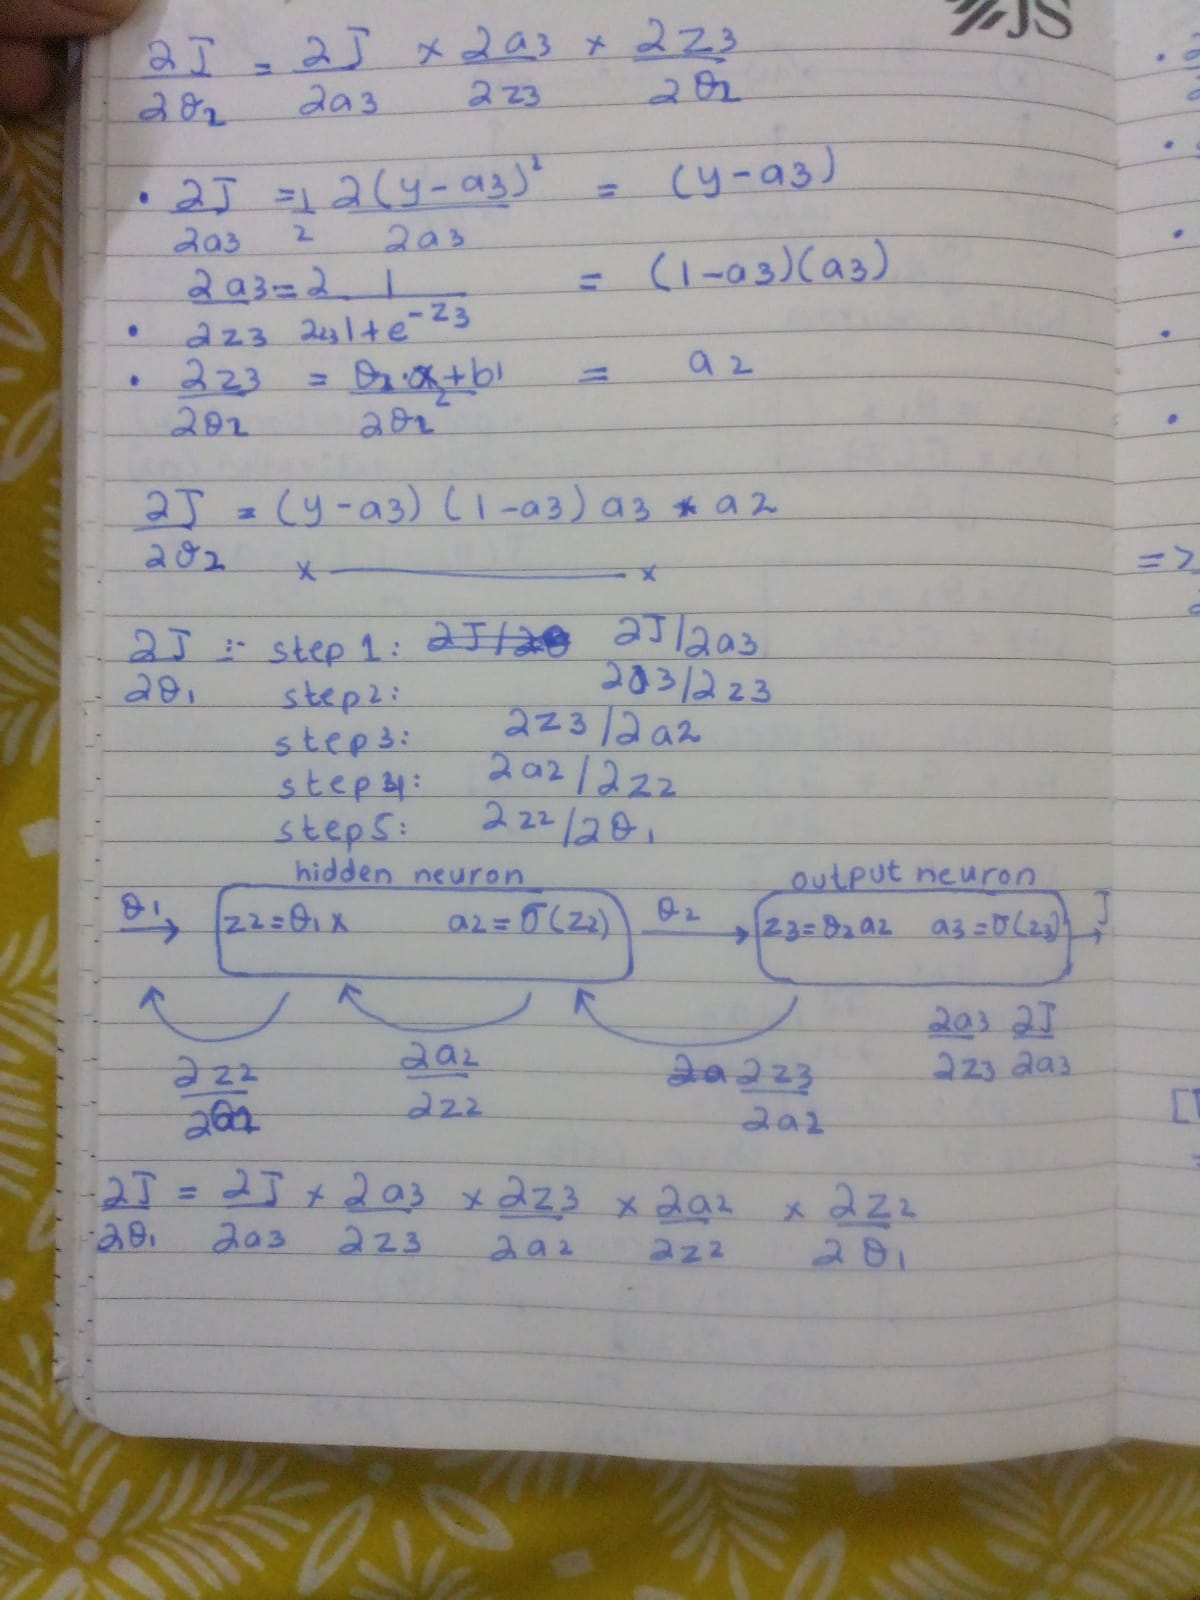 JS
∂J/∂θ2 = ∂J/∂a3 × ∂a3/∂z3 × ∂z3/∂θ2
• ∂J/∂a3 = 1/2 ∂(y-a3)²/∂a3 = (y-a3)
• ∂a3/∂z3 = ∂/∂z3 1/1+e^-z3 = (1-a3)(a3)
• ∂z3/∂θ2 = θ2·a2+b1/∂θ2 = a2
∂J/∂θ2 = (y-a3)(1-a3)a3 * a2
x ———— x
∂J/∂θ1 :- step1: ∂J/∂a3
step2: ∂a3/∂z3
step3: ∂z3/∂a2
step4: ∂a2/∂z2
step5: ∂z2/∂θ1
hidden neuron output neuron
θ1 z2=θ1x a2=σ(z2) θ2 z3=θ2a2 a3=σ(z3) J
∂z2/∂θ2 ∂a2/∂z2 ∂z3/∂a2 ∂a3/∂z3 ∂J/∂a3
∂J/∂θ1 = ∂J/∂a3 × ∂a3/∂z3 × ∂z3/∂a2 × ∂a2/∂z2 × ∂z2/∂θ1